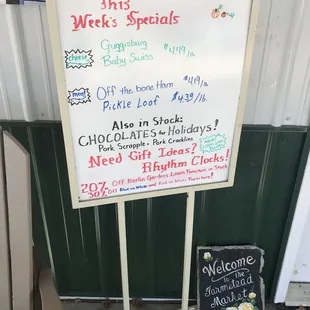 This
Week's Specials
cheese
Guggisburg
Baby Swiss
$4.49/lb
meat
Off the bone Ham
$4.19/lb
Pickle Loaf $4.39/lb
Also in Stock:
CHOCOLATES for Holidays!
Pork Scrapple - Pork Cracklies
Need Gift Ideas?
Rhythm Clocks!
20% Off Berlin Gardens Lawn Furniture in Stock
Off Blue on White and
Welcome
to the
Farmstead
Market